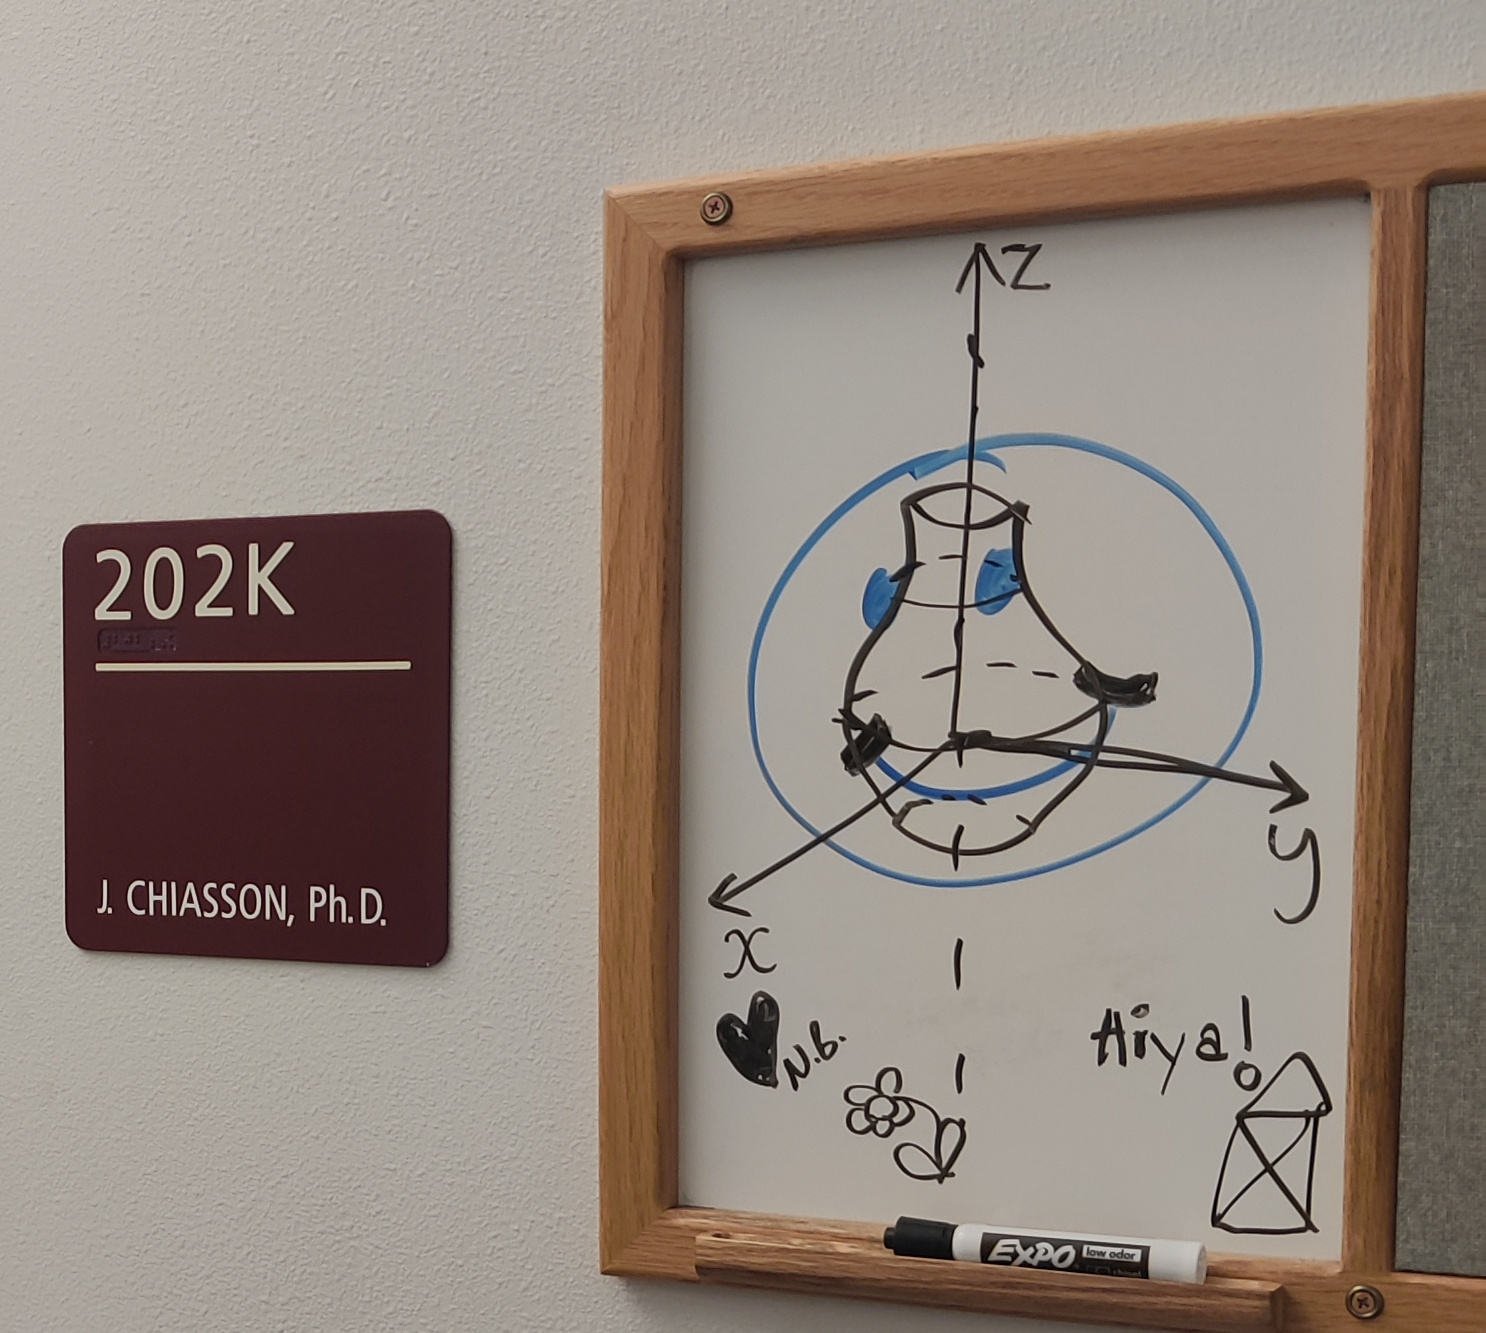 202K
J. CHIASSON, Ph.D.
Z
y
x
N.b.
Hiya!
EXPO low odor
chisel